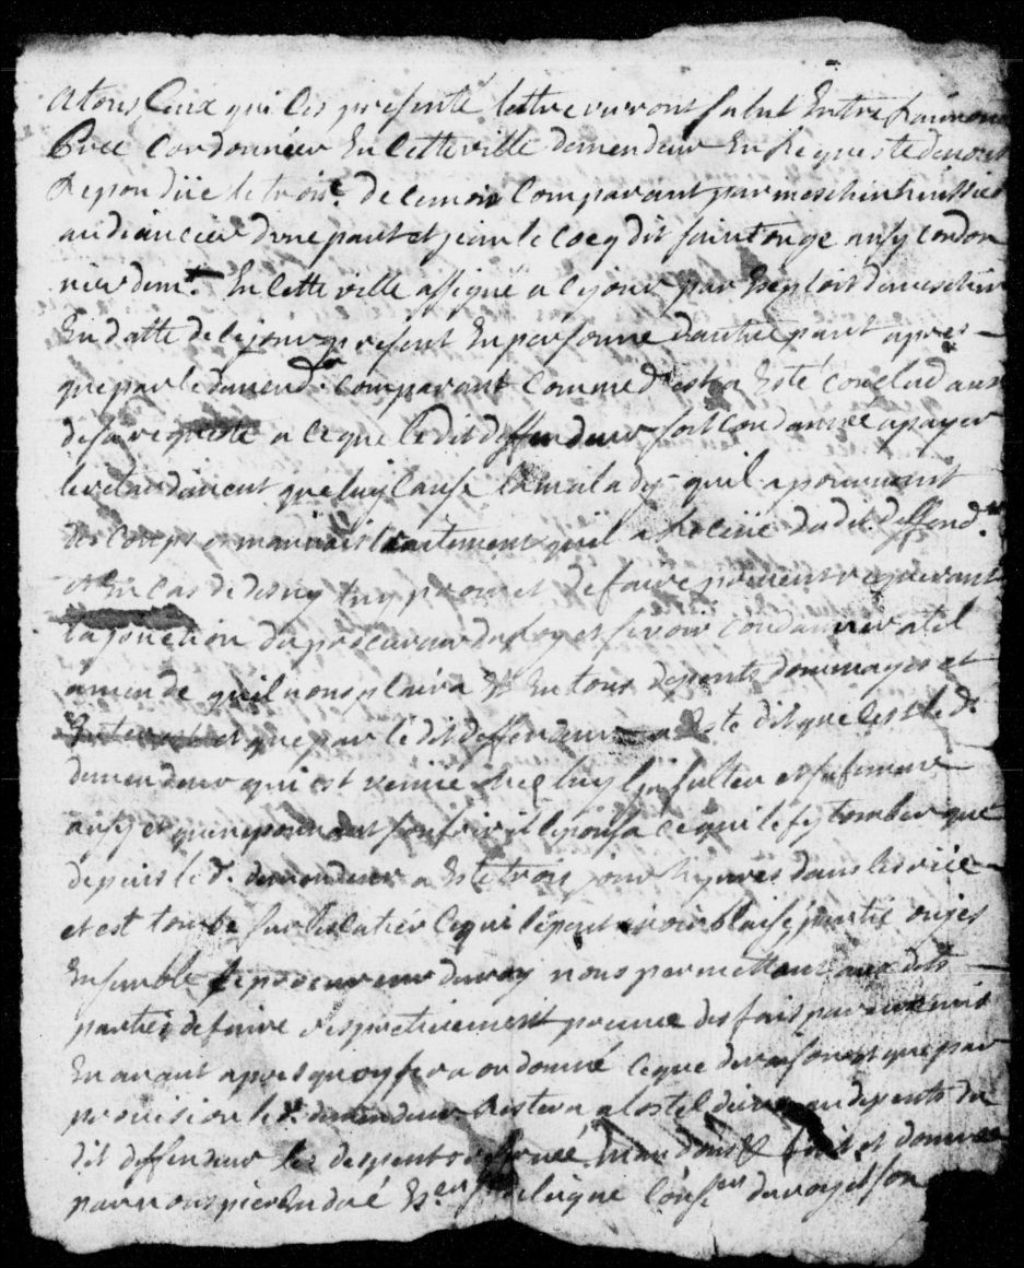 Atous Ceux qui Ces presente lettre verront salut Entre
Cordonnier En cette ville demendeur En Requeste de nous
Repondüe le trois.e de ce mois Comparant par meschin huissier
audiancier d'une part et jean le Cocq dit saintonge aussy cordon
nier dem.t En Cette ville assigné a ce jour par Exploit de meschin
En datte de ce jour present En personne d'autre part apres
que par le demend.r comparant comme d'est a Esté conclud aux
de sa requeste a ce que le dit deffendeur soit Condamné a payer
que luy cause la malady qu'il a
des Coups et mauvais traitement qu'il a Receüe du dit deffend.r
et En cas de deny luy permet de faire preuve requerant
la jonction du procureur du Roy et se voir condamner a tel
amende qu'il nous plaira & En tous depents dommages et
Interest et que par le dit deffendeur a Esté dit que c'est le d.
demendeur qui est venüe chez luy l'insulter et sa femme
aussy et que ne pouvant souffrir il le poussa ce qui le fy tomber que
depuis le d. demendeur a Esté trois jour yvres dans les rüe
et est tombé sur l'escalier ce qui l'peut avoir blaisé partie ouyes
Ensemble le procureur du roy nous permettons aux dits
parties de faire respectivement preuve des fais par eux mis
En avant apres quoy sera ordonné ce que de raison et que par
provision le d. demendeur Restera a l'ostel dieu au depents du
dit deffendeur les despents reservé Mandons & fait et donnée
par nous pierre André Es.er de leigne Cons.er du roy et son